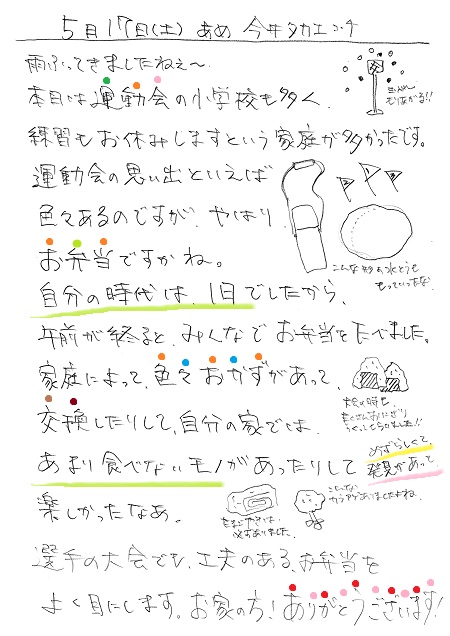 5月17日(土) あめ 今井タカエ コーチ
雨ふってきましたねぇ〜
本日は運動会の小学校も多く、
練習もお休みしますという家庭が多かったです。
運動会の思い出といえば
色々あるのですが、やはり
お弁当ですかね。
こんな形の水とうも
もっていったな
自分の時代は、1日でしたから、
午前が終ると、みんなでお弁当をたべました。
家庭によって、色々おかずがあって、
交換したりして、自分の家では
あまり食べないモノがあったりして
めずらしくて、
発見があって
楽しかったなぁ。
たまごやきは、
必ずありました。
こんな
選手の大会でも、工夫のある、お弁当を
よく目にします。お家の方!ありがとうございます!